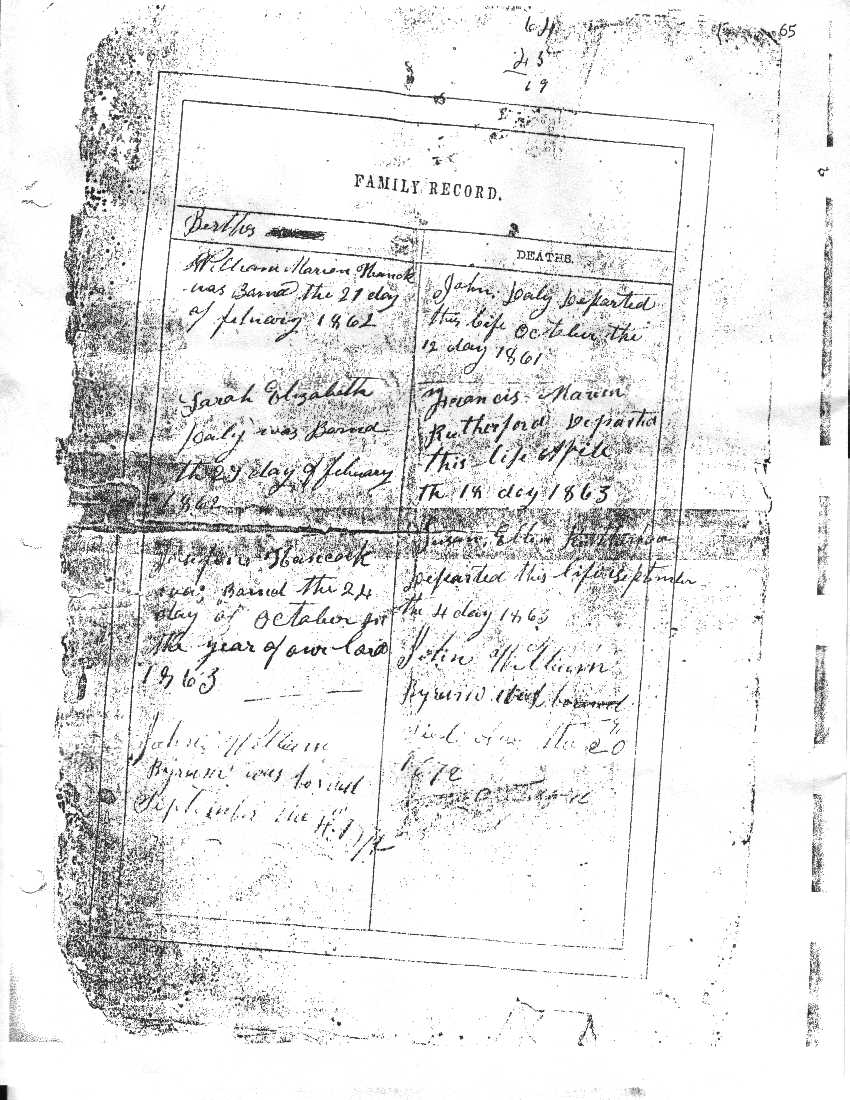 65
64
45
19
FAMILY RECORD.
Berths
William Marion Hancok
was Barnd the 27 day
of februarey 1862
Sarah Elizabeth
Daly was Barnd
th 29 day of februarey
1862
Hancock
was Barnd the 24
day of October in
the year of our lord
1863
John William
Byrum was bornd
September the 4
DEATHS.
John Daly Departed
this life October the
12 day 1861
Francis Marion
Rutherford Departed
this life Aprile
th 18 dey 1863
Susan Ellen
Departed this life September
the 4 day 1863
John William
Byrum was bornd
Died the 20
1872